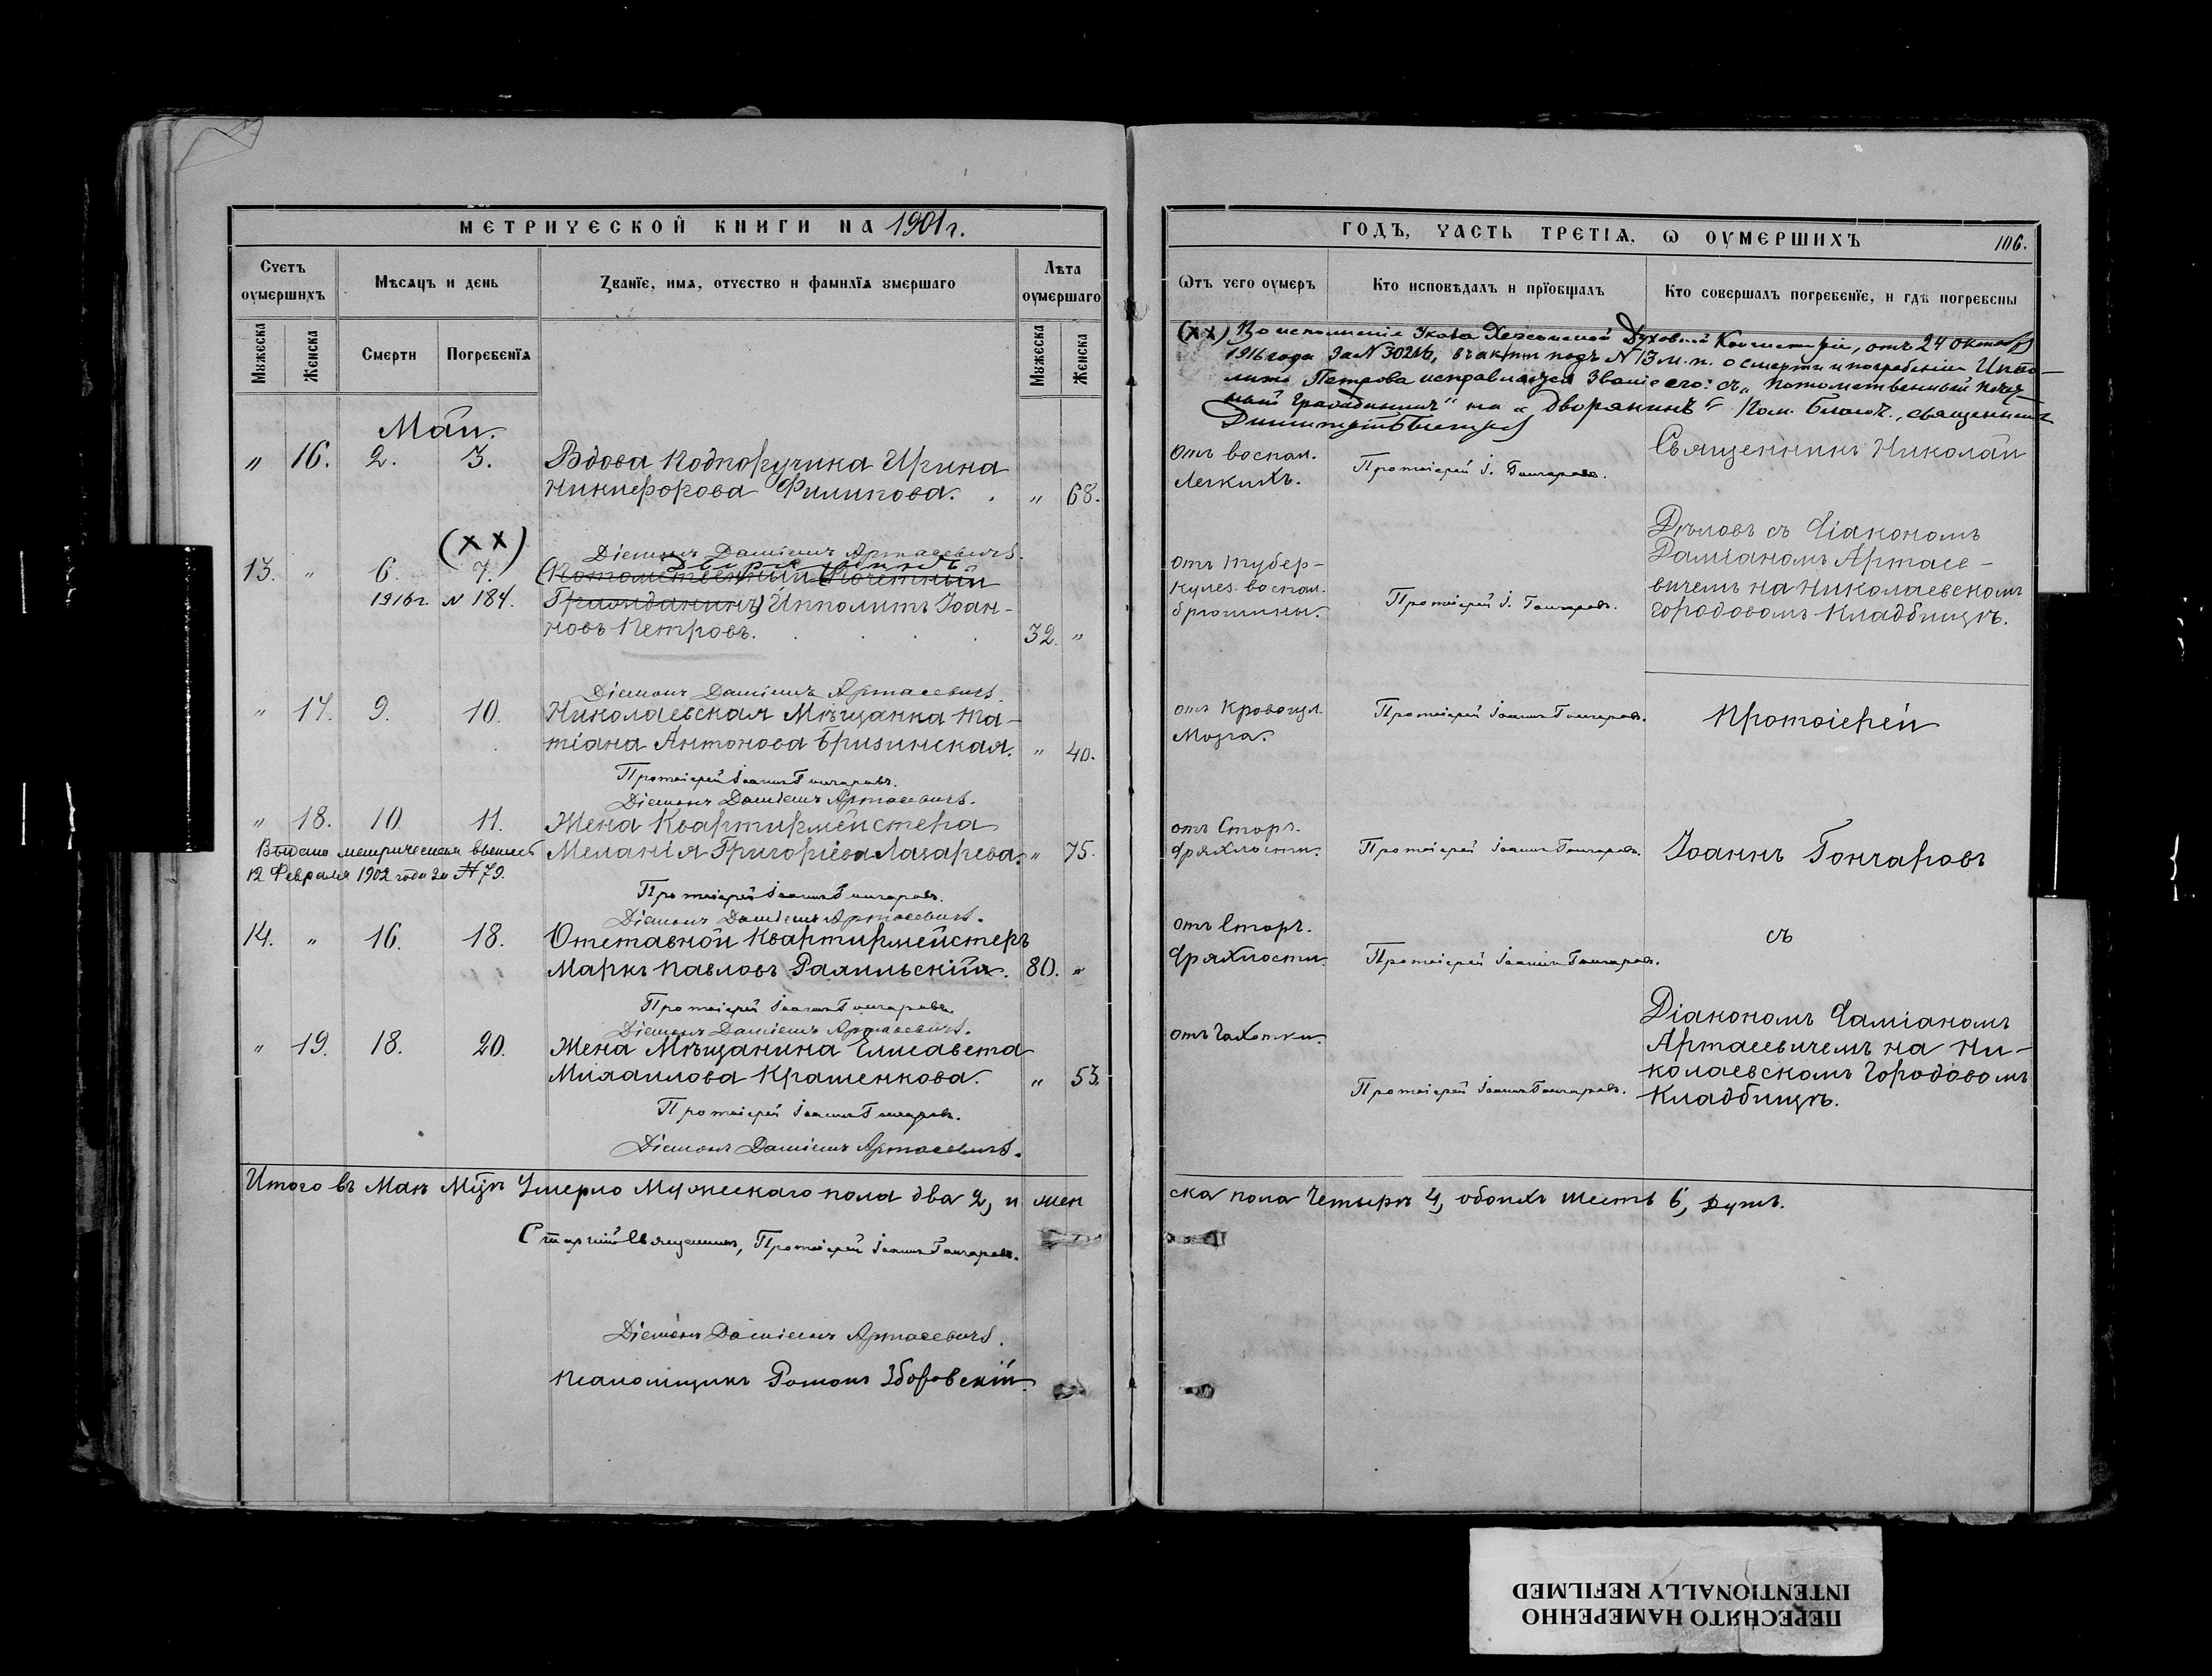 МЕТРИЧЕСКОЙ КНИГИ НА 1901 г.
Счетъ оумершихъ
Мѣсяцъ и день
Званїе, имя, отчество и фамилїя умершаго
Лѣта оумершаго
Мужеска
Женска
Смерти
Погребенїя
Мужеска
Женска
Май.
" 16. 2. 3. Вдова Подпоручика Ирина
Никифорова Филипова. " 68.
(XX)
Діаконъ Даміанъ Артасевичъ.
Дворянинъ
13. " 6. 7. (Потомственный Почетный
1916 г. N 184. Гражданинъ) Ипполитъ Іоан-
новъ Петровъ. 32. "
Діаконъ Даміанъ Артасевичъ.
" 17. 9. 10. Николаевская Мѣщанка Та-
тіана Антонова Бризинская. " 40.
Протоіерей Іоаннъ Гончаровъ.
Діаконъ Даміанъ Артасевичъ.
" 18. 10 11. Жена Квартирмейстера
Выдана метрическая выпись Меланія Григоріева Лазарева. " 75.
12 Февраля 1902 года за № 79.
Протоіерей Іоаннъ Гончаровъ.
Діаконъ Даміанъ Артасевичъ.
14. " 16. 18. Отставной Квартирмейстеръ
Маркъ Павловъ 80. "
Протоіерей Іоаннъ Гончаровъ.
Діаконъ Даміанъ Артасевичъ.
" 19. 18. 20. Жена Мѣщанина Елисавета
Михаилова Крашенкова. " 53.
Протоіерей Іоаннъ Гончаровъ.
Діаконъ Даміанъ Артасевичъ.
Итого въ Маѣ М-цѣ Умерло Мужескаго пола два 2, и жен
Старшій Священникъ, Протоіерей Іоаннъ Гончаровъ.
Діаконъ Даміанъ Артасевичъ.
Псаломщикъ Романъ Зборовскій.
ГОДЪ, ЧАСТЬ ТРЕТІЯ, Ѡ ОУМЕРШИХЪ
106.
Ѿтъ чего оумеръ
Кто исповѣдалъ и прїобщалъ
Кто совершалъ погребенїе, и гдѣ погребены
(XX) Во исполненіе Указа Херсонской Духовной Консисторіи, отъ 24 Октября
1916 года За N 30216, въ актѣ подъ N 13 м. п. о смерти и погребеніи Иппо-
лита Петрова исправляется Званіе его: съ „Потомственный Почет-
ный Гражданинъ" на „Дворянинъ" священникъ
Отъ воспал.
Легкихъ.
Протоіерей І. Гончаровъ.
Священникъ Николай
Дѣловъ съ Діакономъ
Даміаномъ Артасе-
вичемъ на Николаевскомъ
Городовомъ Кладбищѣ.
отъ тубер-
кулез. воспал.
брюшины.
Протоіерей І. Гончаровъ.
отъ Кровоизл.
Мозга.
Протоіерей Іоаннъ Гончаровъ.
Протоіерей
отъ Старч.
дряхлости.
Протоіерей Іоаннъ Гончаровъ.
Іоаннъ Гончаровъ
отъ Старч.
дряхлости.
Протоіерей Іоаннъ Гончаровъ.
съ
отъ Чахотки.
Протоіерей Іоаннъ Гончаровъ.
Діакономъ Даміаномъ
Артасевичемъ на Ни-
колаевскомъ Городовомъ
Кладбищѣ.
ска пола Четыре 4, обоихъ шесть 6, душъ.
ПЕРЕСНЯТО НАМЕРЕННО
INTENTIONALLY REFILMED